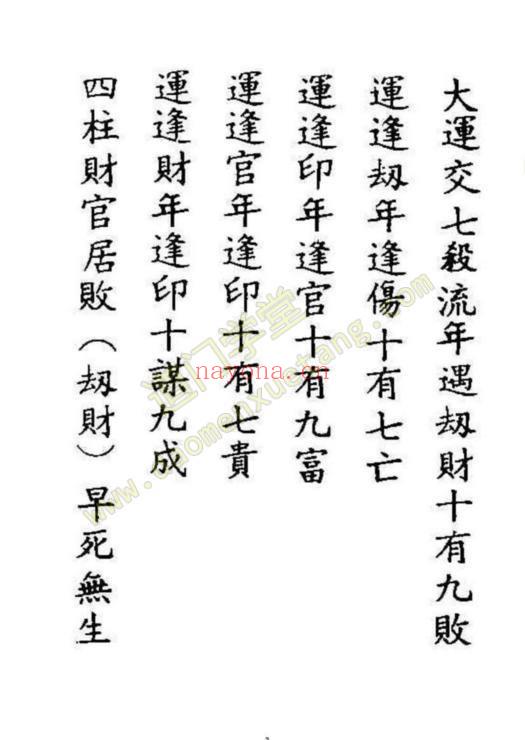 大運交七殺流年遇刼財十有九敗
運逢刼年逢傷十有七亡
運逢印年逢官十有九富
運逢官年逢印十有七貴
運逢財年逢印十謀九成
四柱財官居敗（刼財）早死無生
道门学堂
nayona.cn
www.daomenxuetang.com